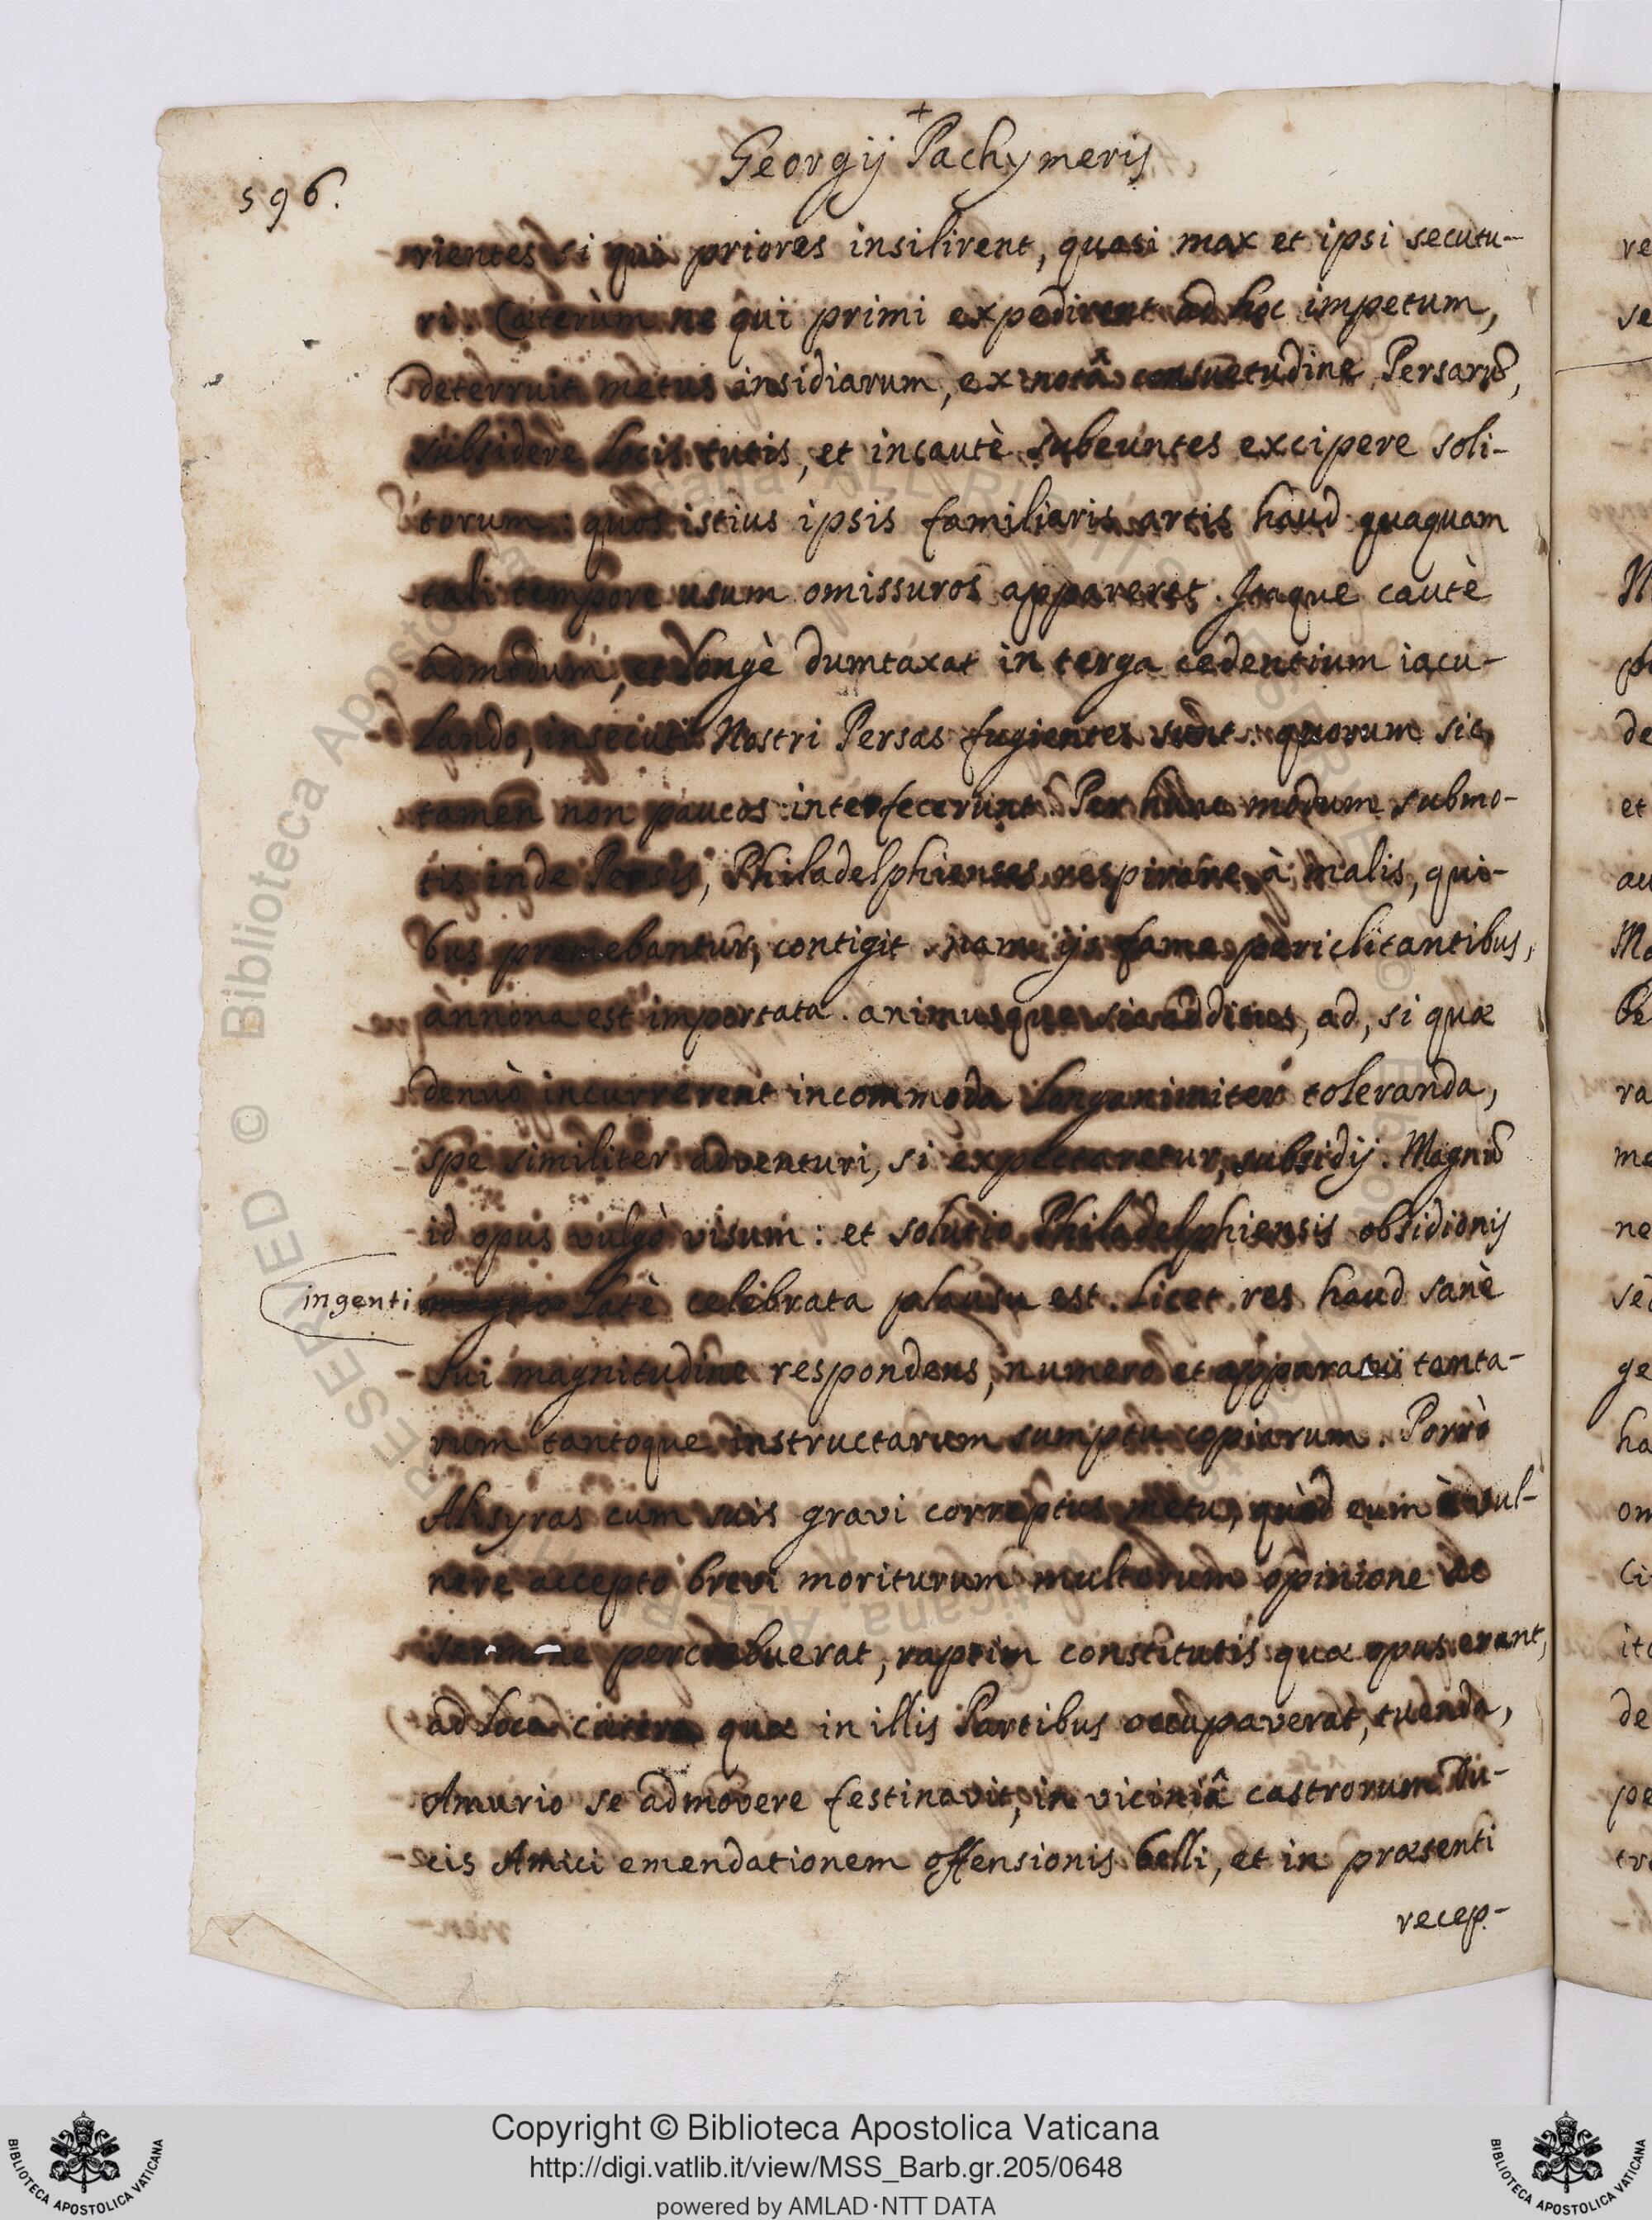 596.
+
Georgij Pachymeris
rientes si qui priores insilirent, quasi mox et ipsi secutu-
ri. Cæterùm ne qui primi expedirent ad hoc impetum,
deterruit metus insidiarum, ex notâ consuetudine Persarū,
subsidere locis tutis, et incautè subeuntes excipere soli-
torum: quos istius ipsis familiaris artis haud quaquam
tali tempore usum omissuros appareret. Itaque cautè
admodum, et longè dumtaxat in terga cedentium iacu-
lando, insecuti Nostri Persas fugientes sunt: quorum sic
tamen non paucos interfecerunt. Per hunc modum submo-
tis inde Persis, Philadelphienses respirare à malis, qui-
bus premebantur, contigit. nam ijs fame periclitantibus,
annona est importata. animusque sic additus, ad, si quæ
denuò incurrerent incommoda longanimiter toleranda,
spe similiter adventuri, si expectaretur, subsidij. Magnū
id opus vulgò visum: et solutio Philadelphiensis obsidionis
ingenti magno latè celebrata plausu est. licet res haud sanè
sui magnitudine respondens, numero et apparatui tanta-
rum tantoque instructarum sumptu copiarum. Porrò
Alisyras cum suis gravi correptus metu, quòd eum è vul-
nere accepto brevi moriturum multorum opinione ac
sermone percrebuerat, raptim constitutis quæ opus erant,
ad loca cætera quæ in illis Partibus occupaverat, tuenda,
Amurio se admovere festinavit, in viciniâ castrorum Du-
cis Amici emendationem offensionis belli, et in præsenti
recep-
re
se
M
ph
de
et
au
Mo
be
ra
ma
ne
sèd
ge
ha
om
Ci
ita
de
pe
Copyright © Biblioteca Apostolica Vaticana
http://digi.vatlib.it/view/MSS_Barb.gr.205/0648
powered by AMLAD·NTT DATA
BIBLIOTECA APOSTOLICA VATICANA
BIBLIOTECA APOSTOLICA VATICANA